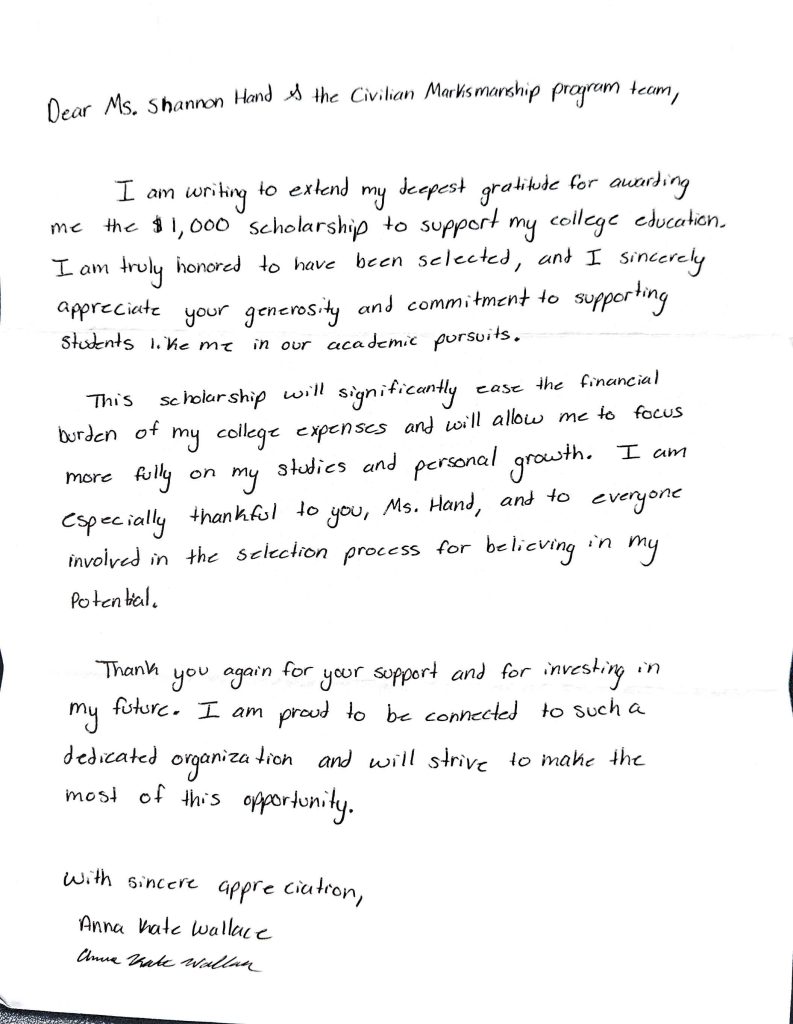 Dear Ms. Shannon Hand & the Civilian Marksmanship program team,
I am writing to extend my deepest gratitude for awarding
me the $1,000 scholarship to support my college education.
I am truly honored to have been selected, and I sincerely
appreciate your generosity and commitment to supporting
students like me in our academic pursuits.
This scholarship will significantly ease the financial
burden of my college expenses and will allow me to focus
more fully on my studies and personal growth. I am
especially thankful to you, Ms. Hand, and to everyone
involved in the selection process for believing in my
potential.
Thank you again for your support and for investing in
my future. I am proud to be connected to such a
dedicated organization and will strive to make the
most of this opportunity.
With sincere appreciation,
Anna Kate Wallace
Anna Kate Wallace